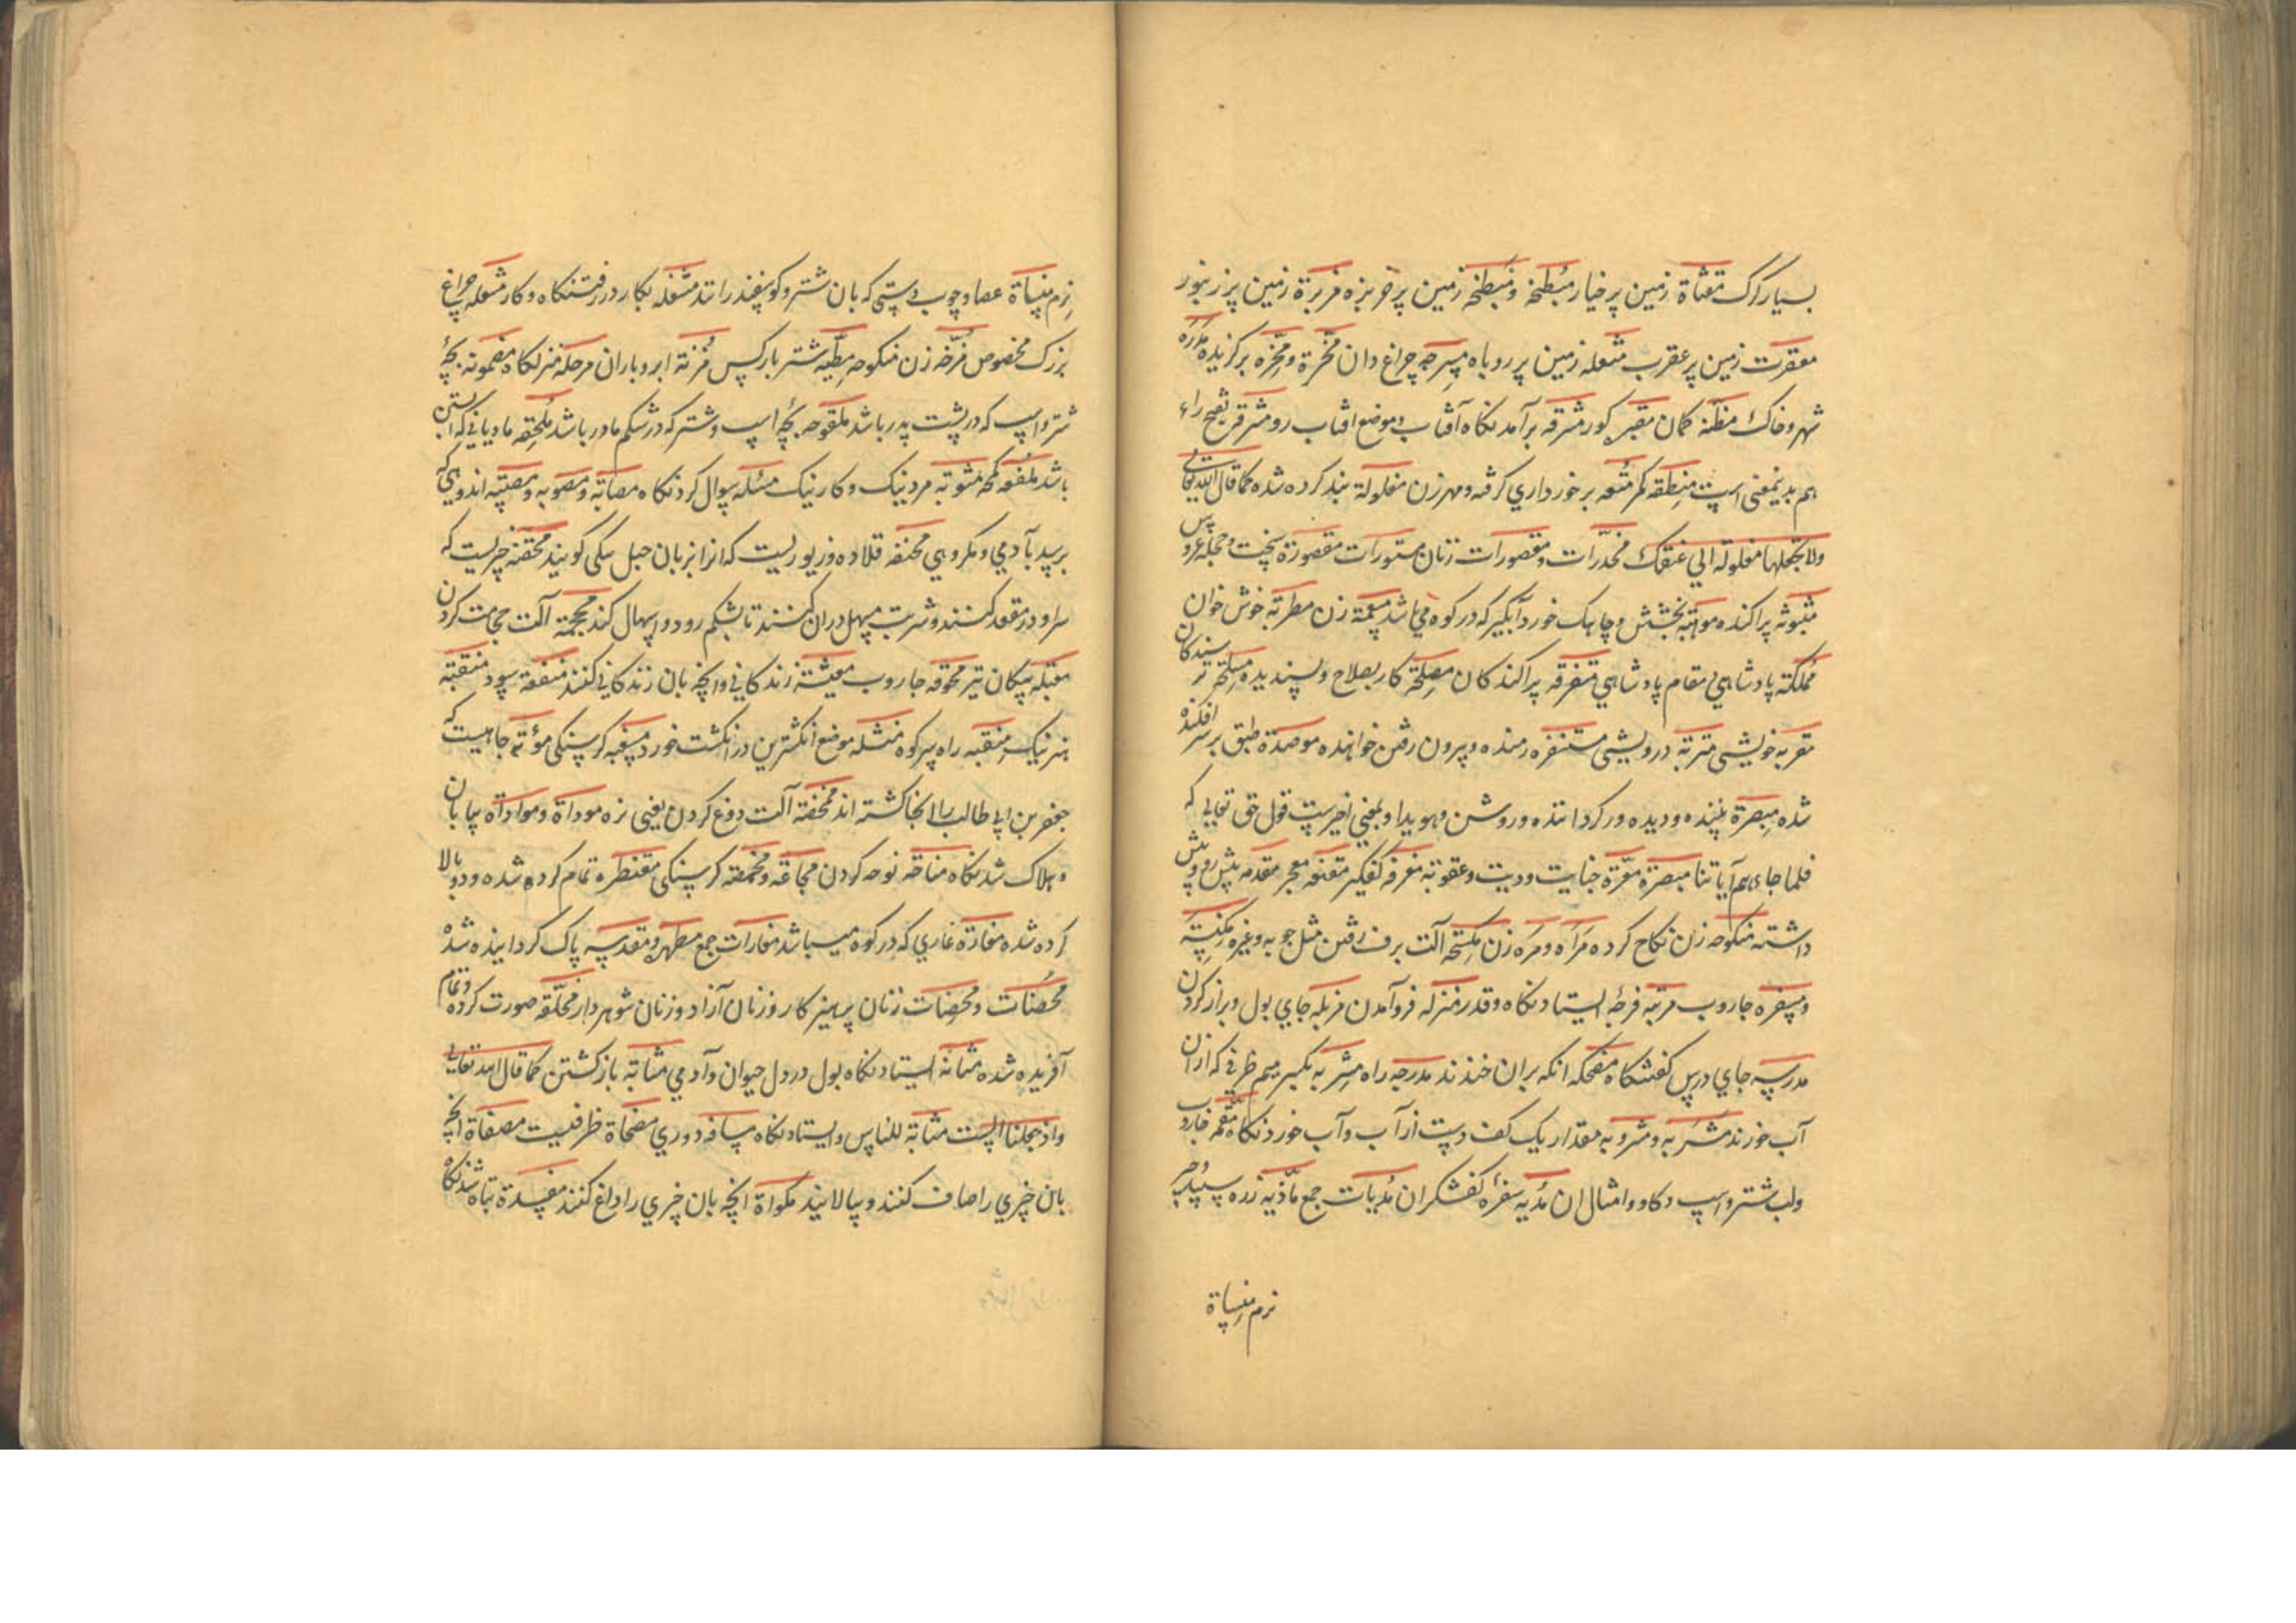 بسیار راک مقثاة زمین پر خیار مبطخه و مبطخه زمین پر خربزه مزبرة زمین پر زنبور
معقرت زمین پر عقرب مثعله زمین پر روباه مسرجه چراغ دان مفخرة و مخره برکزیده مدره
شهر و خاک مظنه کمان مقبر کور مشرقه برآمدنکاه آفتاب و موضع افتاب رو مشرق بفتح راء
هم بدینمعنی است منطقه کمر متعه برخورداری کرفته و مهر زن مغلولة بند کرده شده کما قال الله تعالی
ولا تجعلها مغلولة الی عنقک مخدرات و مقصورات زنان مستورات مقصورة تخت و حجله عروس
مبثوثه پراکنده موهبة بخشش و چاهک خورد آبکیر که در کوه می باشد زن مطربة خوش خوان
مملکة پادشاهی مقام پادشاهی متفرقه پراکندکان مصلحة کار بصلاح و پسندیده مسلحه ترسندکان
مقربه خویشی متربة درویشی مستنفره رمنده و بیرون رفتن خواهنده موصدة طبق بر سر افکنده
شده مبصرة بیننده و دیده ور کرداننده و روشن و هویدا و بمعنی اخیرست قول حق تعالی که
فلما جاءتهم آیاتنا مبصرة معرة جنایت و دیت و عقوبة مغرفه کفکیر مقنعه معجر مقدمه پیش رو و پیش
داشته منکوحه زن نکاح کرده مرأه و مره زن مکسحه آلت برف رفتن مثل چوبه و غیره مکنسة
و مسفره جاروب مرتبه فرجهٔ ایستادنکاه و قدر منزله فروآمدن مزبله جای بول و براز کردن
مدرسه جای درس کفشکاه مضحکه انکه بران خندند مدرجه راه مشربه بکسر میم ظرفی که ازان
آب خورند مشربه و مشروبه مقدار یک کف دست از آب و آب خوردنکاه مقمه جاروب
ولب شتر و اسپ و کاو و امثال ان مدیه سفرهٔ کفشکران مدیات جمع ماذیه زره سپید
نرم منساة
نرم منساة عصا و چوب دستی که بان شتر و کوسفند رانند مشغله بکار در رفتنکاه و کار مشعله چراغ
بزرک مخصوص مفرخه زن منکوحه مطیه شتر بارکس مزنة ابر و باران مرحله منزلکاه مضمونه بچهٔ
شتر و اسپ که در پشت پدر باشد ملقوحه بچهٔ اسپ و شتر که در شکم مادر باشد ملحقه مادیانی که آبستن
باشد ملفعه کمجه مثوبة مرد نیک و کار نیک مسئله سوال کردنکاه مصابة و مصوبه و مصیبه اندوهی که
برسد بآدمی و مکروهی مخنقه قلاده و زیوریست که انرا بزبان جبل سکی کویند محقنه چیزیست که
سر او در مقعد کنند و شربت مسهل دران کنند تا بشکم رود و اسهال کند محجمة آلت حجامت کردن
معبله پیکان تیر محوقه جاروب معیشة زندکانی و انچه بان زندکانی کنند منفعة سود منقبة
هنر نیک منقبه راه سر کوه مثله موضع انکشترین در انکشت خورد مسغبه کرسنکی موتة جاهیست که
جعفر بن ابی طالب را انجا کشته اند ممخضة آلت دوغ کردن یعنی نره موداة و مواداة بیابان
و هلاک شدنکاه مناحة نوحه کردن مجاعة و مخمصه کرسنکی مقنطرة تمام کرده شده و دو بالا
کرده شده مغارة غاری که در کوه میباشد مغارات جمع مطهره و مقدسه پاک کردانیده شده
محصنات و محصنات زنان پرهیزکار و زنان آزاد و زنان شوهردار مخلقة صورت کرده و تمام
آفریده شده مثانة ایستادنکاه بول در دل حیوان و آدمی مثابة بازکشتن کما قال الله تعالی
واذ جعلنا البیت مثابة للناس و ایستادنکاه مسافه دوری مصحاة ظرفیست مصفاة انچه
بان چیزی را صاف کنند و بپالایند مکواة انچه بان چیزی را داغ کنند مفسدة تباه شدنکاه